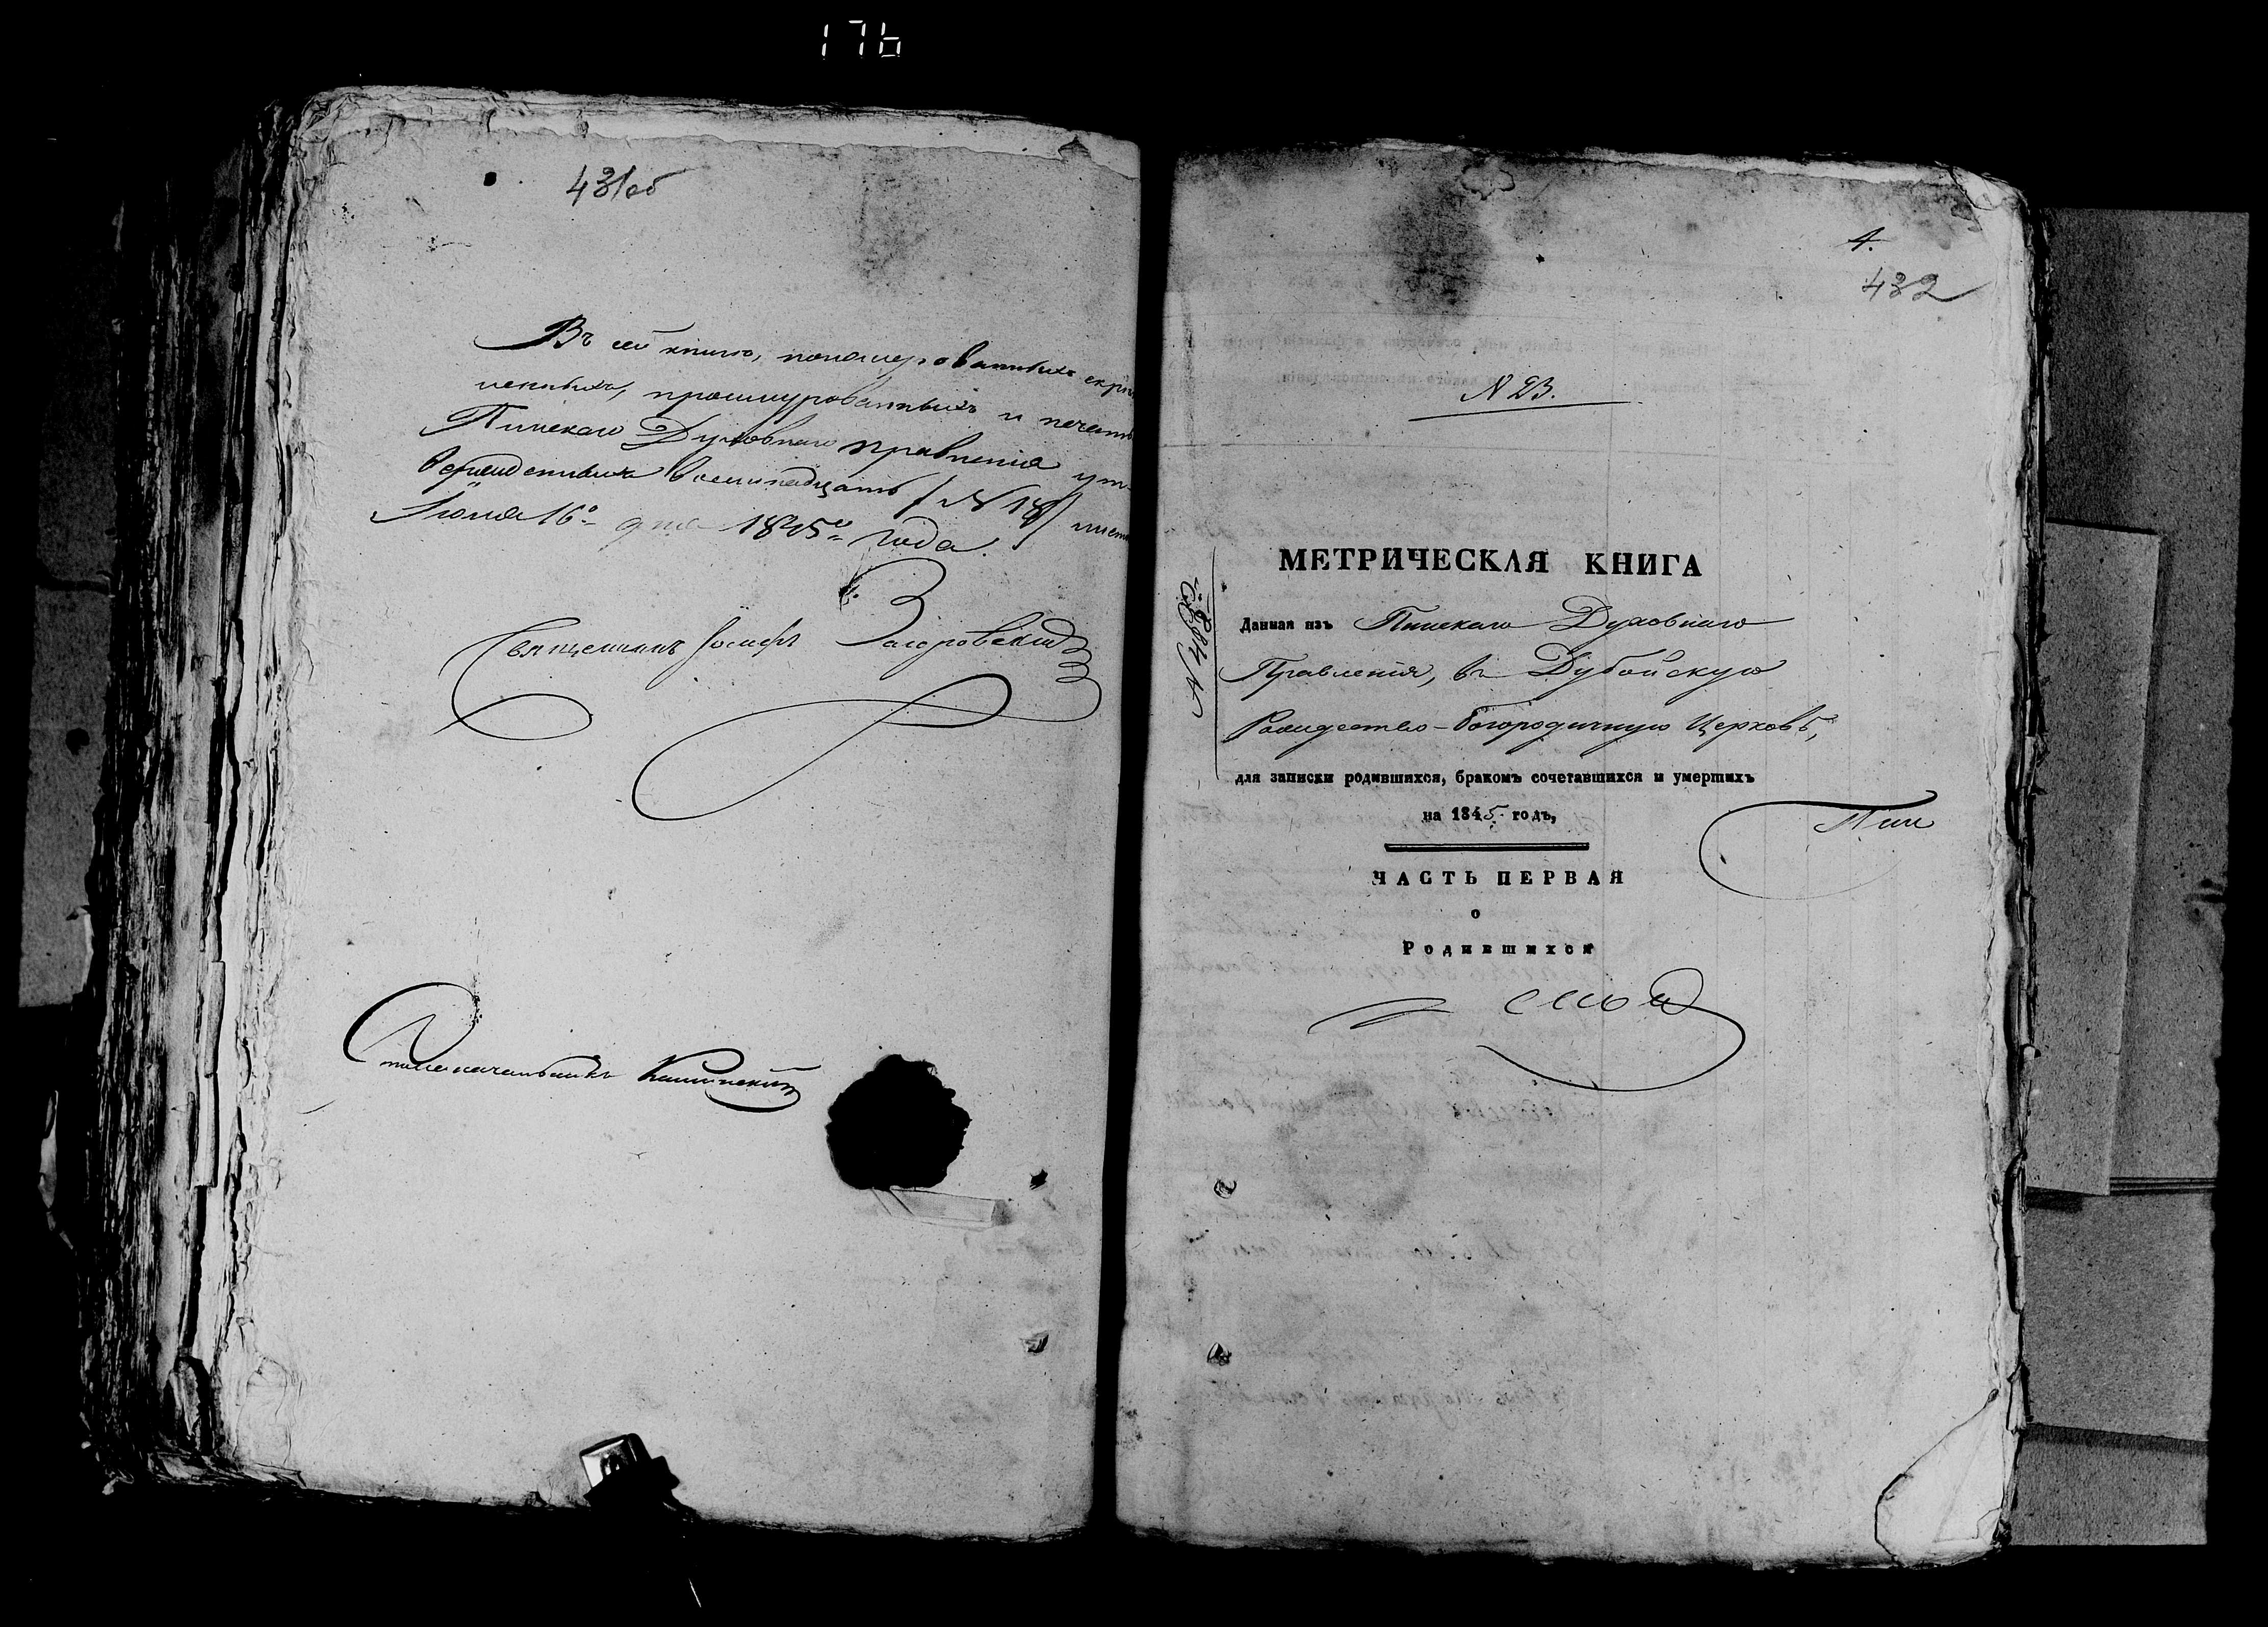 176
431об
Въ сей книгѣ, пономерованныхъ скрѣп
ленныхъ, прошнурованныхъ и печатью
Пинскаго Духовнаго Правленія ут-
вержденныхъ восемнадцать / N 18 / листо
Іюня 16º дня 1845º года.
Священникъ Іосифъ
Столоначальникъ
1.
432
N 23.
МЕТРИЧЕСКАЯ КНИГА
Данная изъ Пинскаго Духовнаго
Правленія, въ Дубойскую
Рождество-Богородичную Церковь,
для записки родившихся, бракомъ сочетавшихся и умершихъ
на 1845 годъ,
Пин
ЧАСТЬ ПЕРВАЯ
о
Родившихся